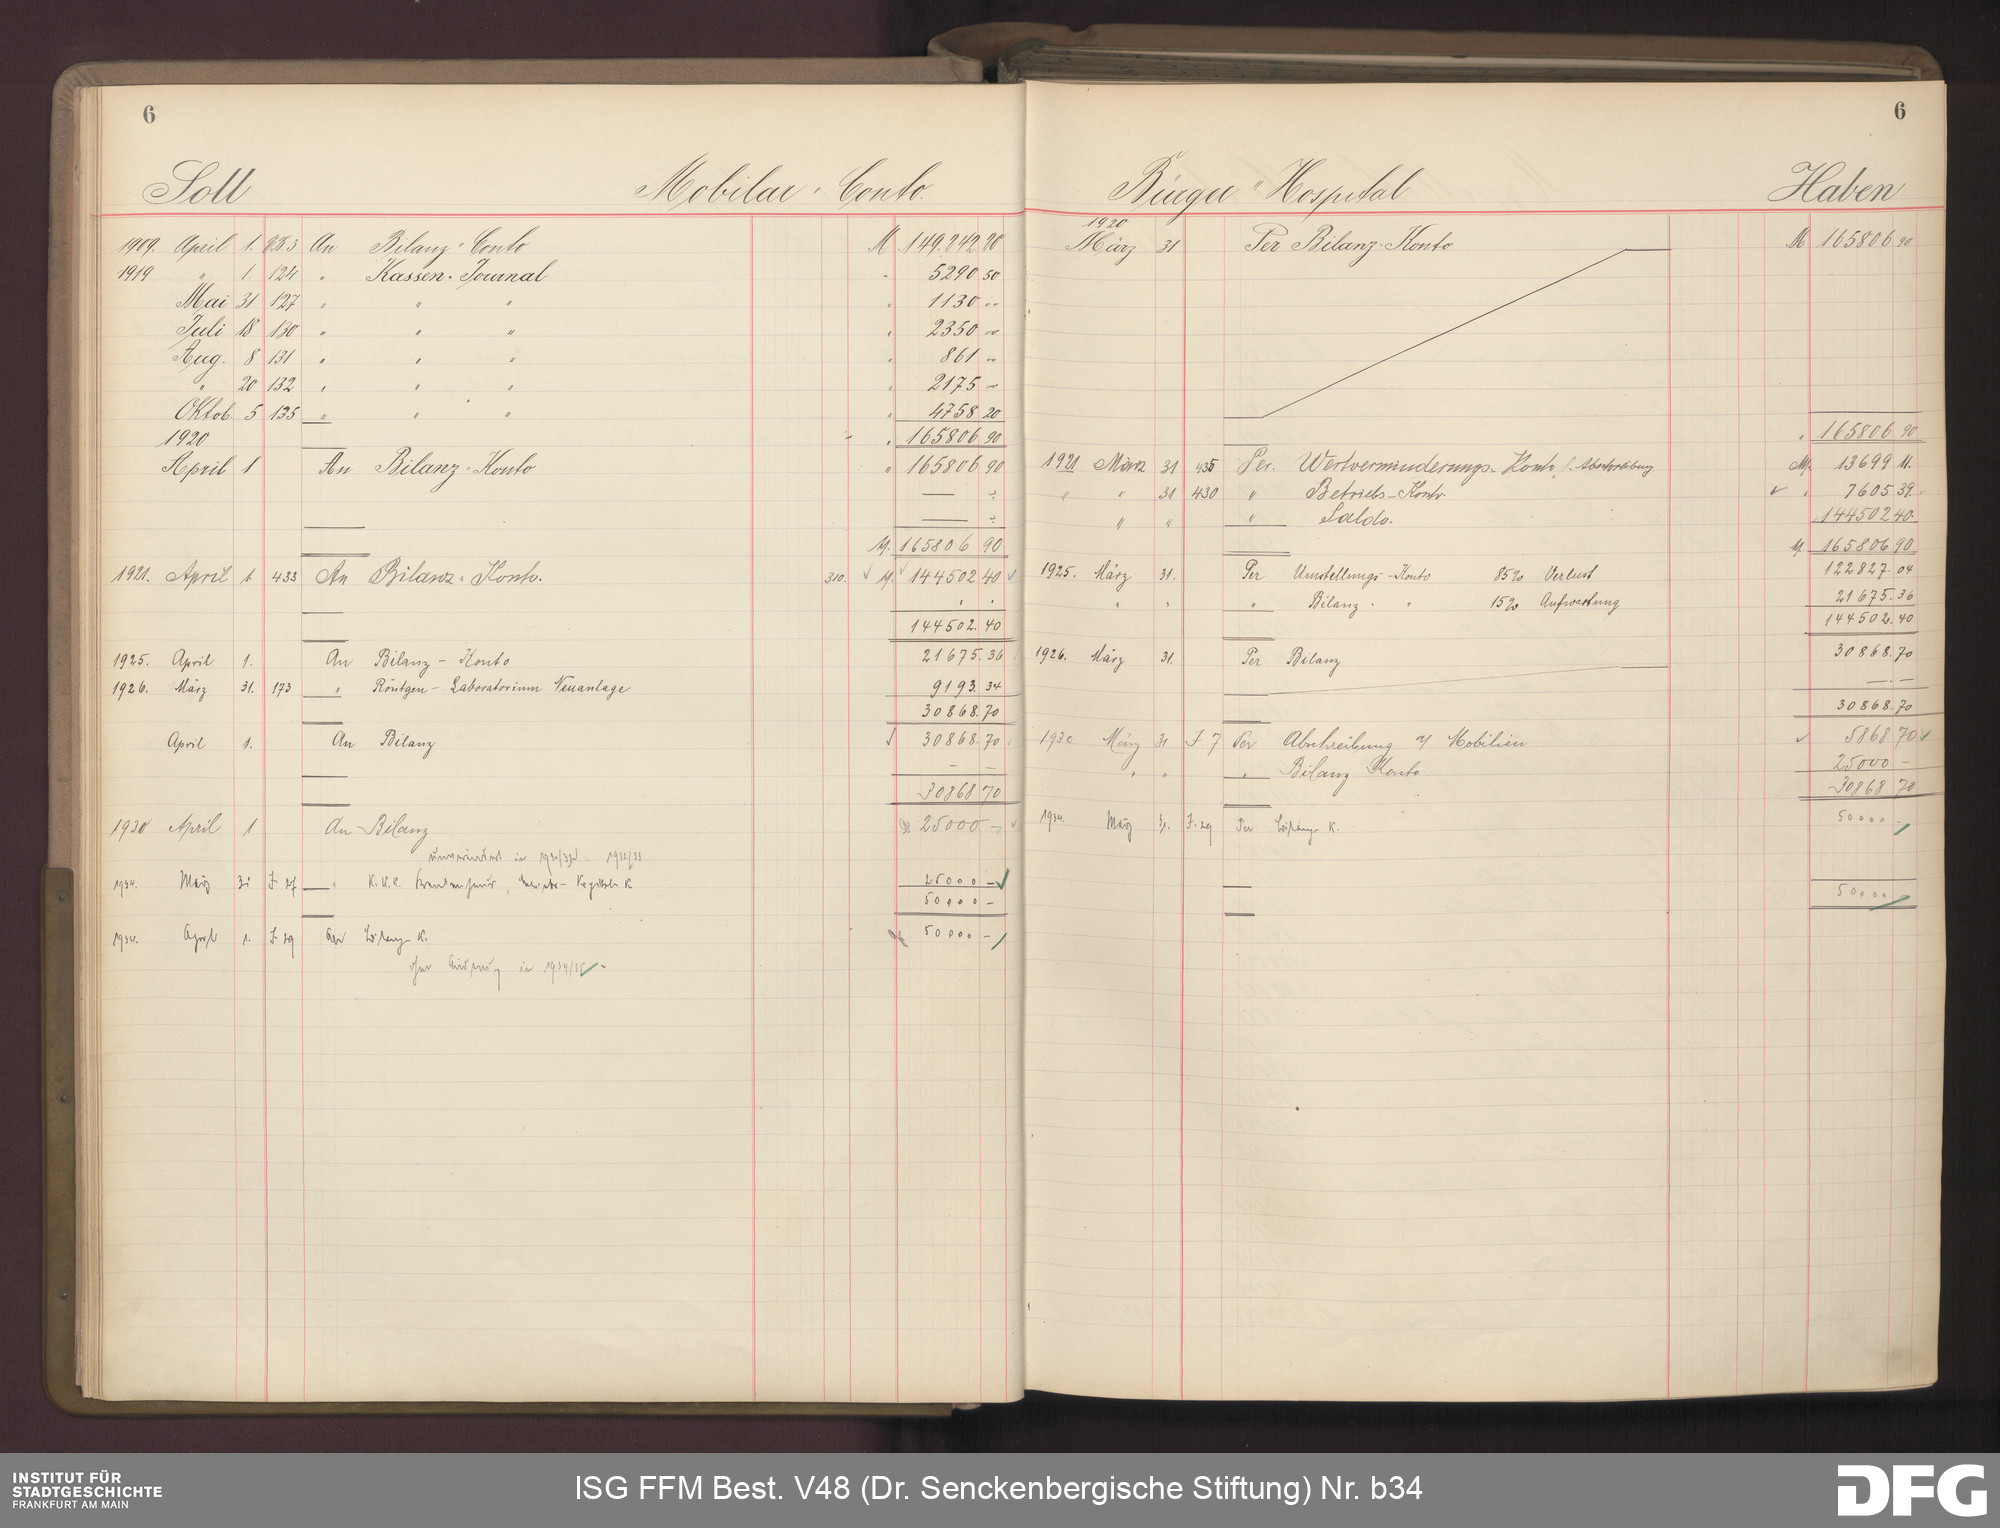 6
Soll Mobilar-Conto.
1909. April 1. An Bilanz-Conto M 149.242 20
1919 " 1. 124 " Kassen-Journal " 5290 50
Mai 31 127 " " " " 1130 --
Juli 18 130 " " " " 2350 --
Aug. 8 131 " " " " 861 --
" 20 132 " " " " 2175 --
Oktob. 5 135 " " " " 4758 20
1920 " 165806 90
April 1 An Bilanz-Konto " 165806 90
M. 165806 90
1921. April 1. 433 An Bilanz-Konto. 310. M. 144502 40
144502.40
1925. April 1. An Bilanz-Konto 21675.36
1926. März 31. 173 " Röntgen-Laboratorium Neuanlage 9193.34
30868.70
April 1. An Bilanz 30868.70
30868 70
1930 April 1 An Bilanz 25000 -
unverändert in 1932/33
1934. März 31 K. 25000 -
50000 -
1934. April 1. J 29 An Bilanz K. 50000 -
ohne Änderung in 1934/35
6
Bürger-Hospital Haben
1920
März 31 Per Bilanz-Konto M 165806 90
" 165806 90
1921 März 31 435 Per. Wertverminderungs-Konto f. Abschreibung M. 13699 11.
" " 31 430 " Betriebs-Konto " 7605 39.
" " " Saldo. 144502 40.
M. 165806 90
1925. März 31. Per Umstellungs-Konto 85% Verlust 122827.04
" " " Bilanz " " 15% Aufwertung 21675.36
144502.40
1926. März 31. Per Bilanz 30868.70
30868.70
1930 März 31 J 7 Per Abschreibung a/ Mobilien 5868 70
" " " Bilanz Konto 25000 -
30868 70
1934. März 31. J. 29 Per Bilanz K. 50000 -
50000 -
INSTITUT FÜR
STADTGESCHICHTE
FRANKFURT AM MAIN
ISG FFM Best. V48 (Dr. Senckenbergische Stiftung) Nr. b34
DFG